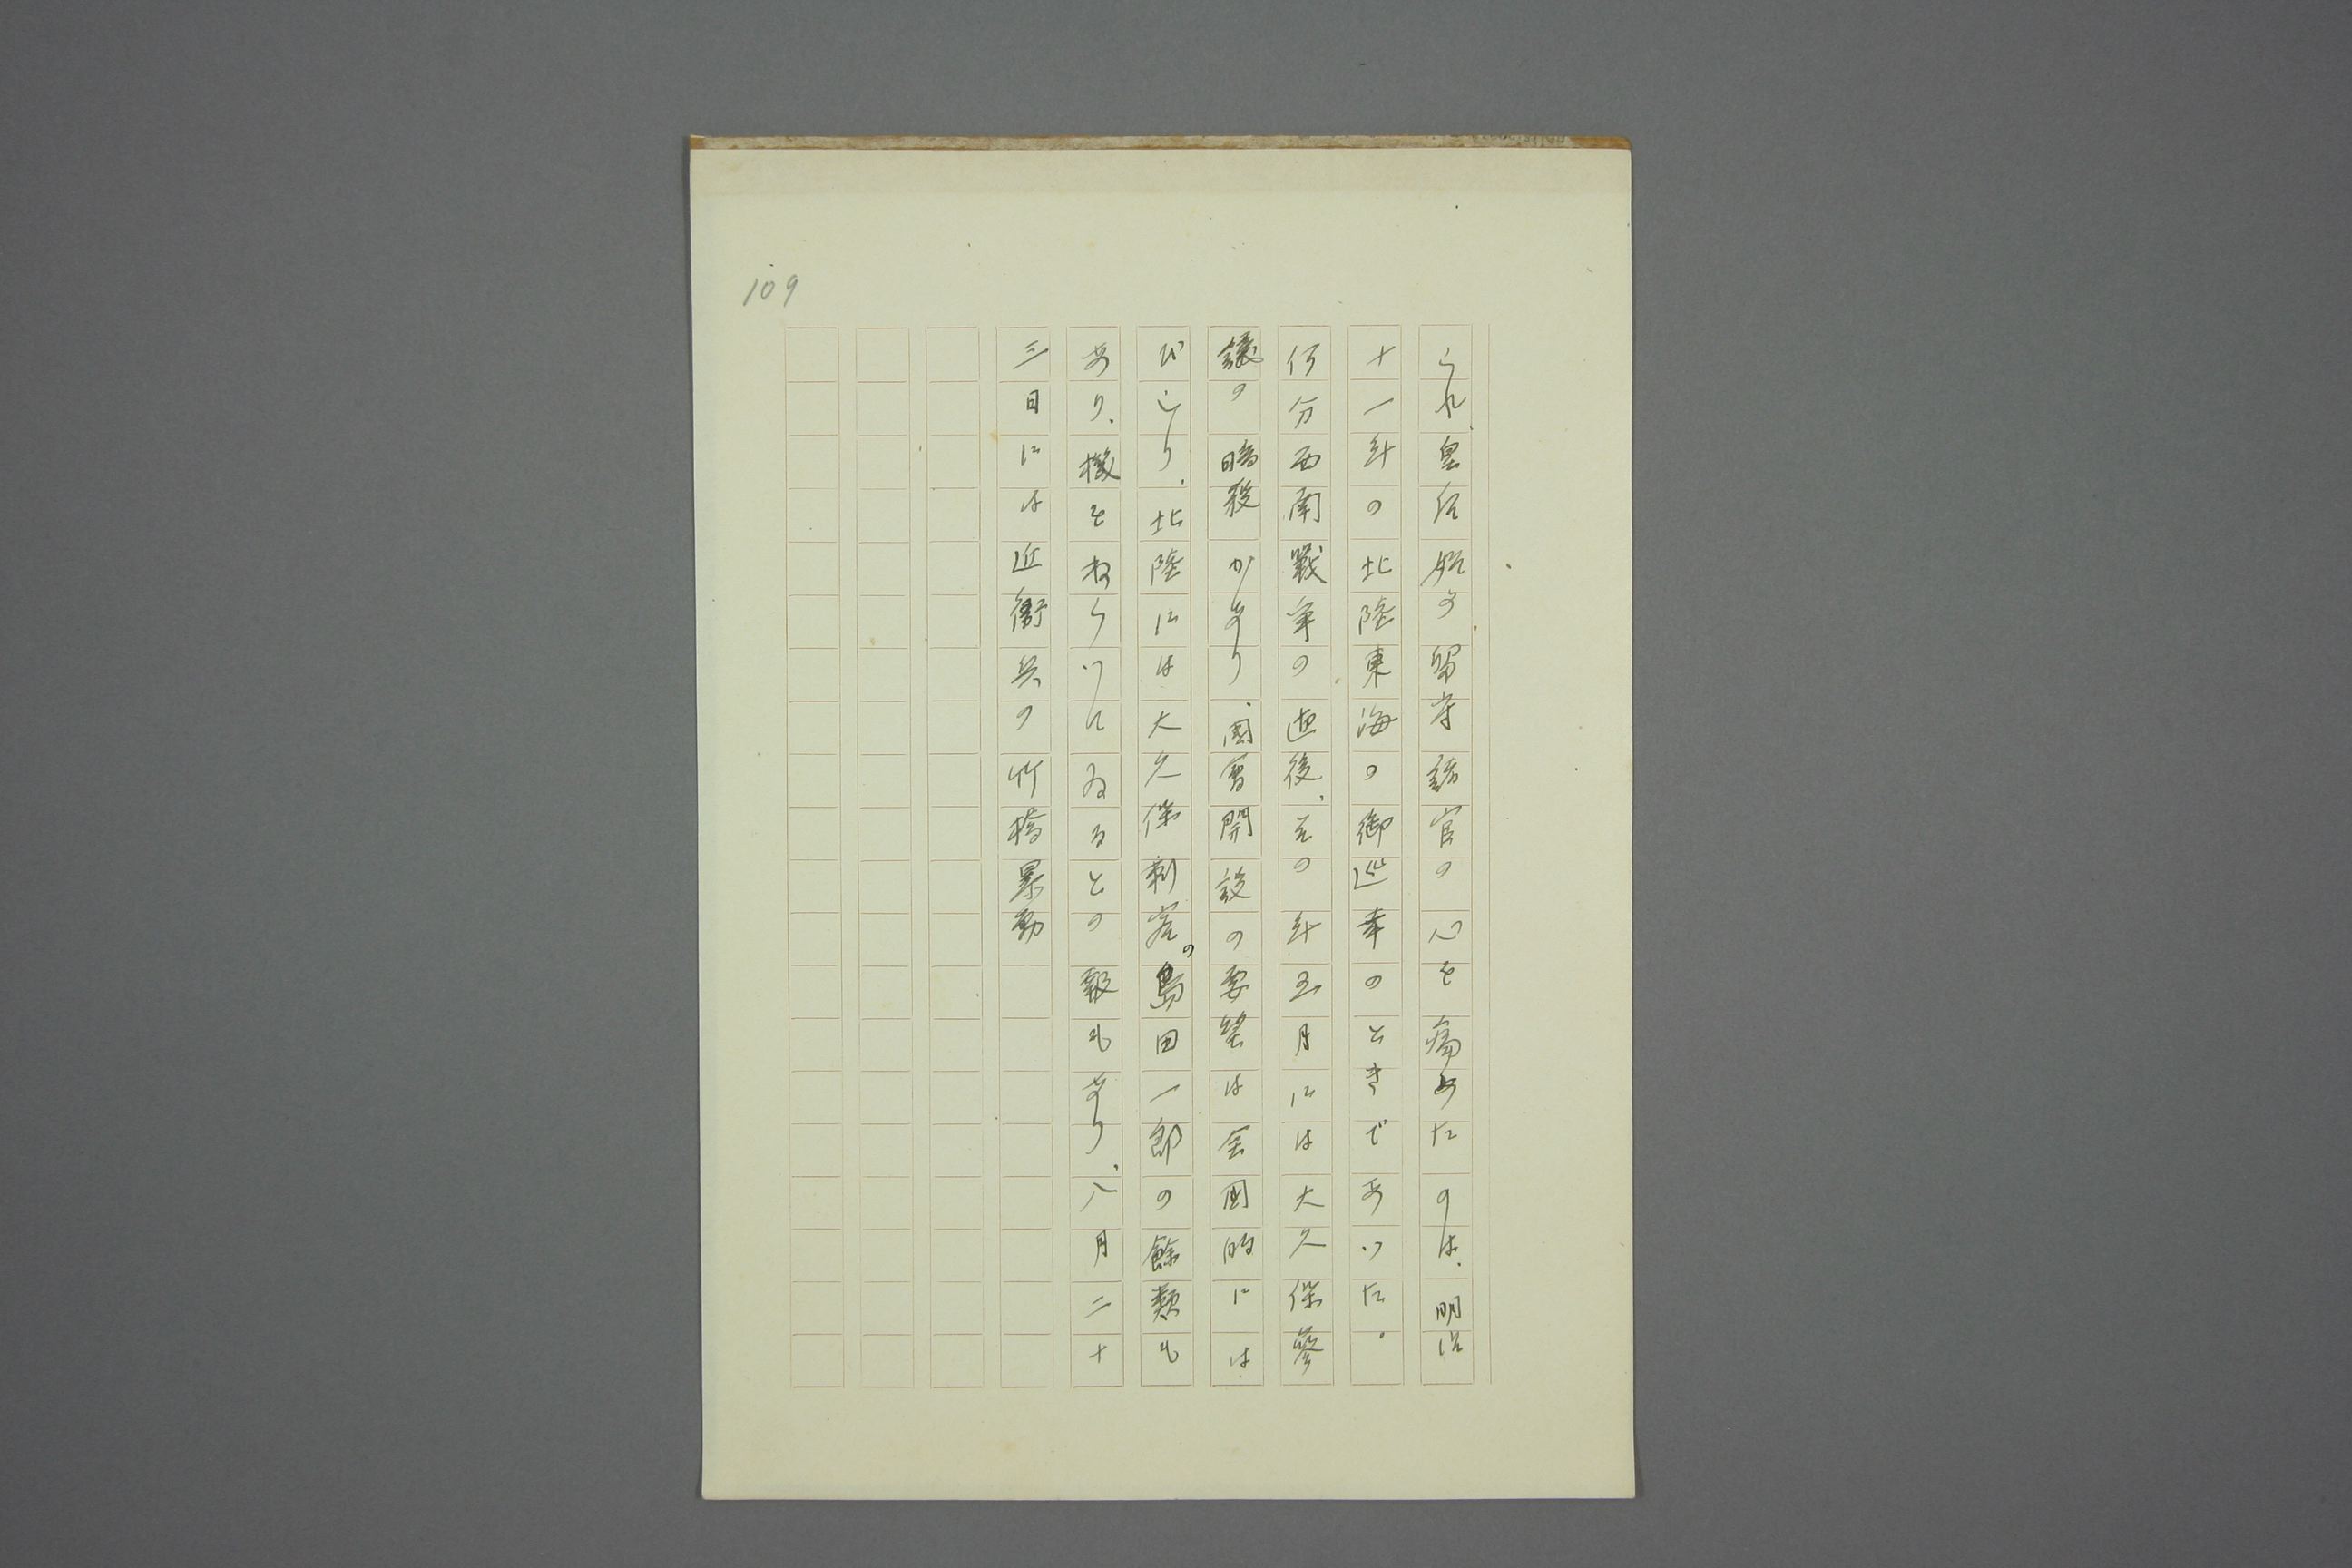 109
られ、皇后始め留守諸官の心を痛めたのは、明治
十一年の北陸東海の御巡幸のときであつた。
何分西南戰争の直後、その年五月には大久保參
議の暗殺があり、國會開設の要望は全国的には
びこり、北陸には大久保刺客の島田一郎の餘類も
あり、機をねらつてゐるとの報もあり、八月二十
三日には近衞兵の竹橋暴動